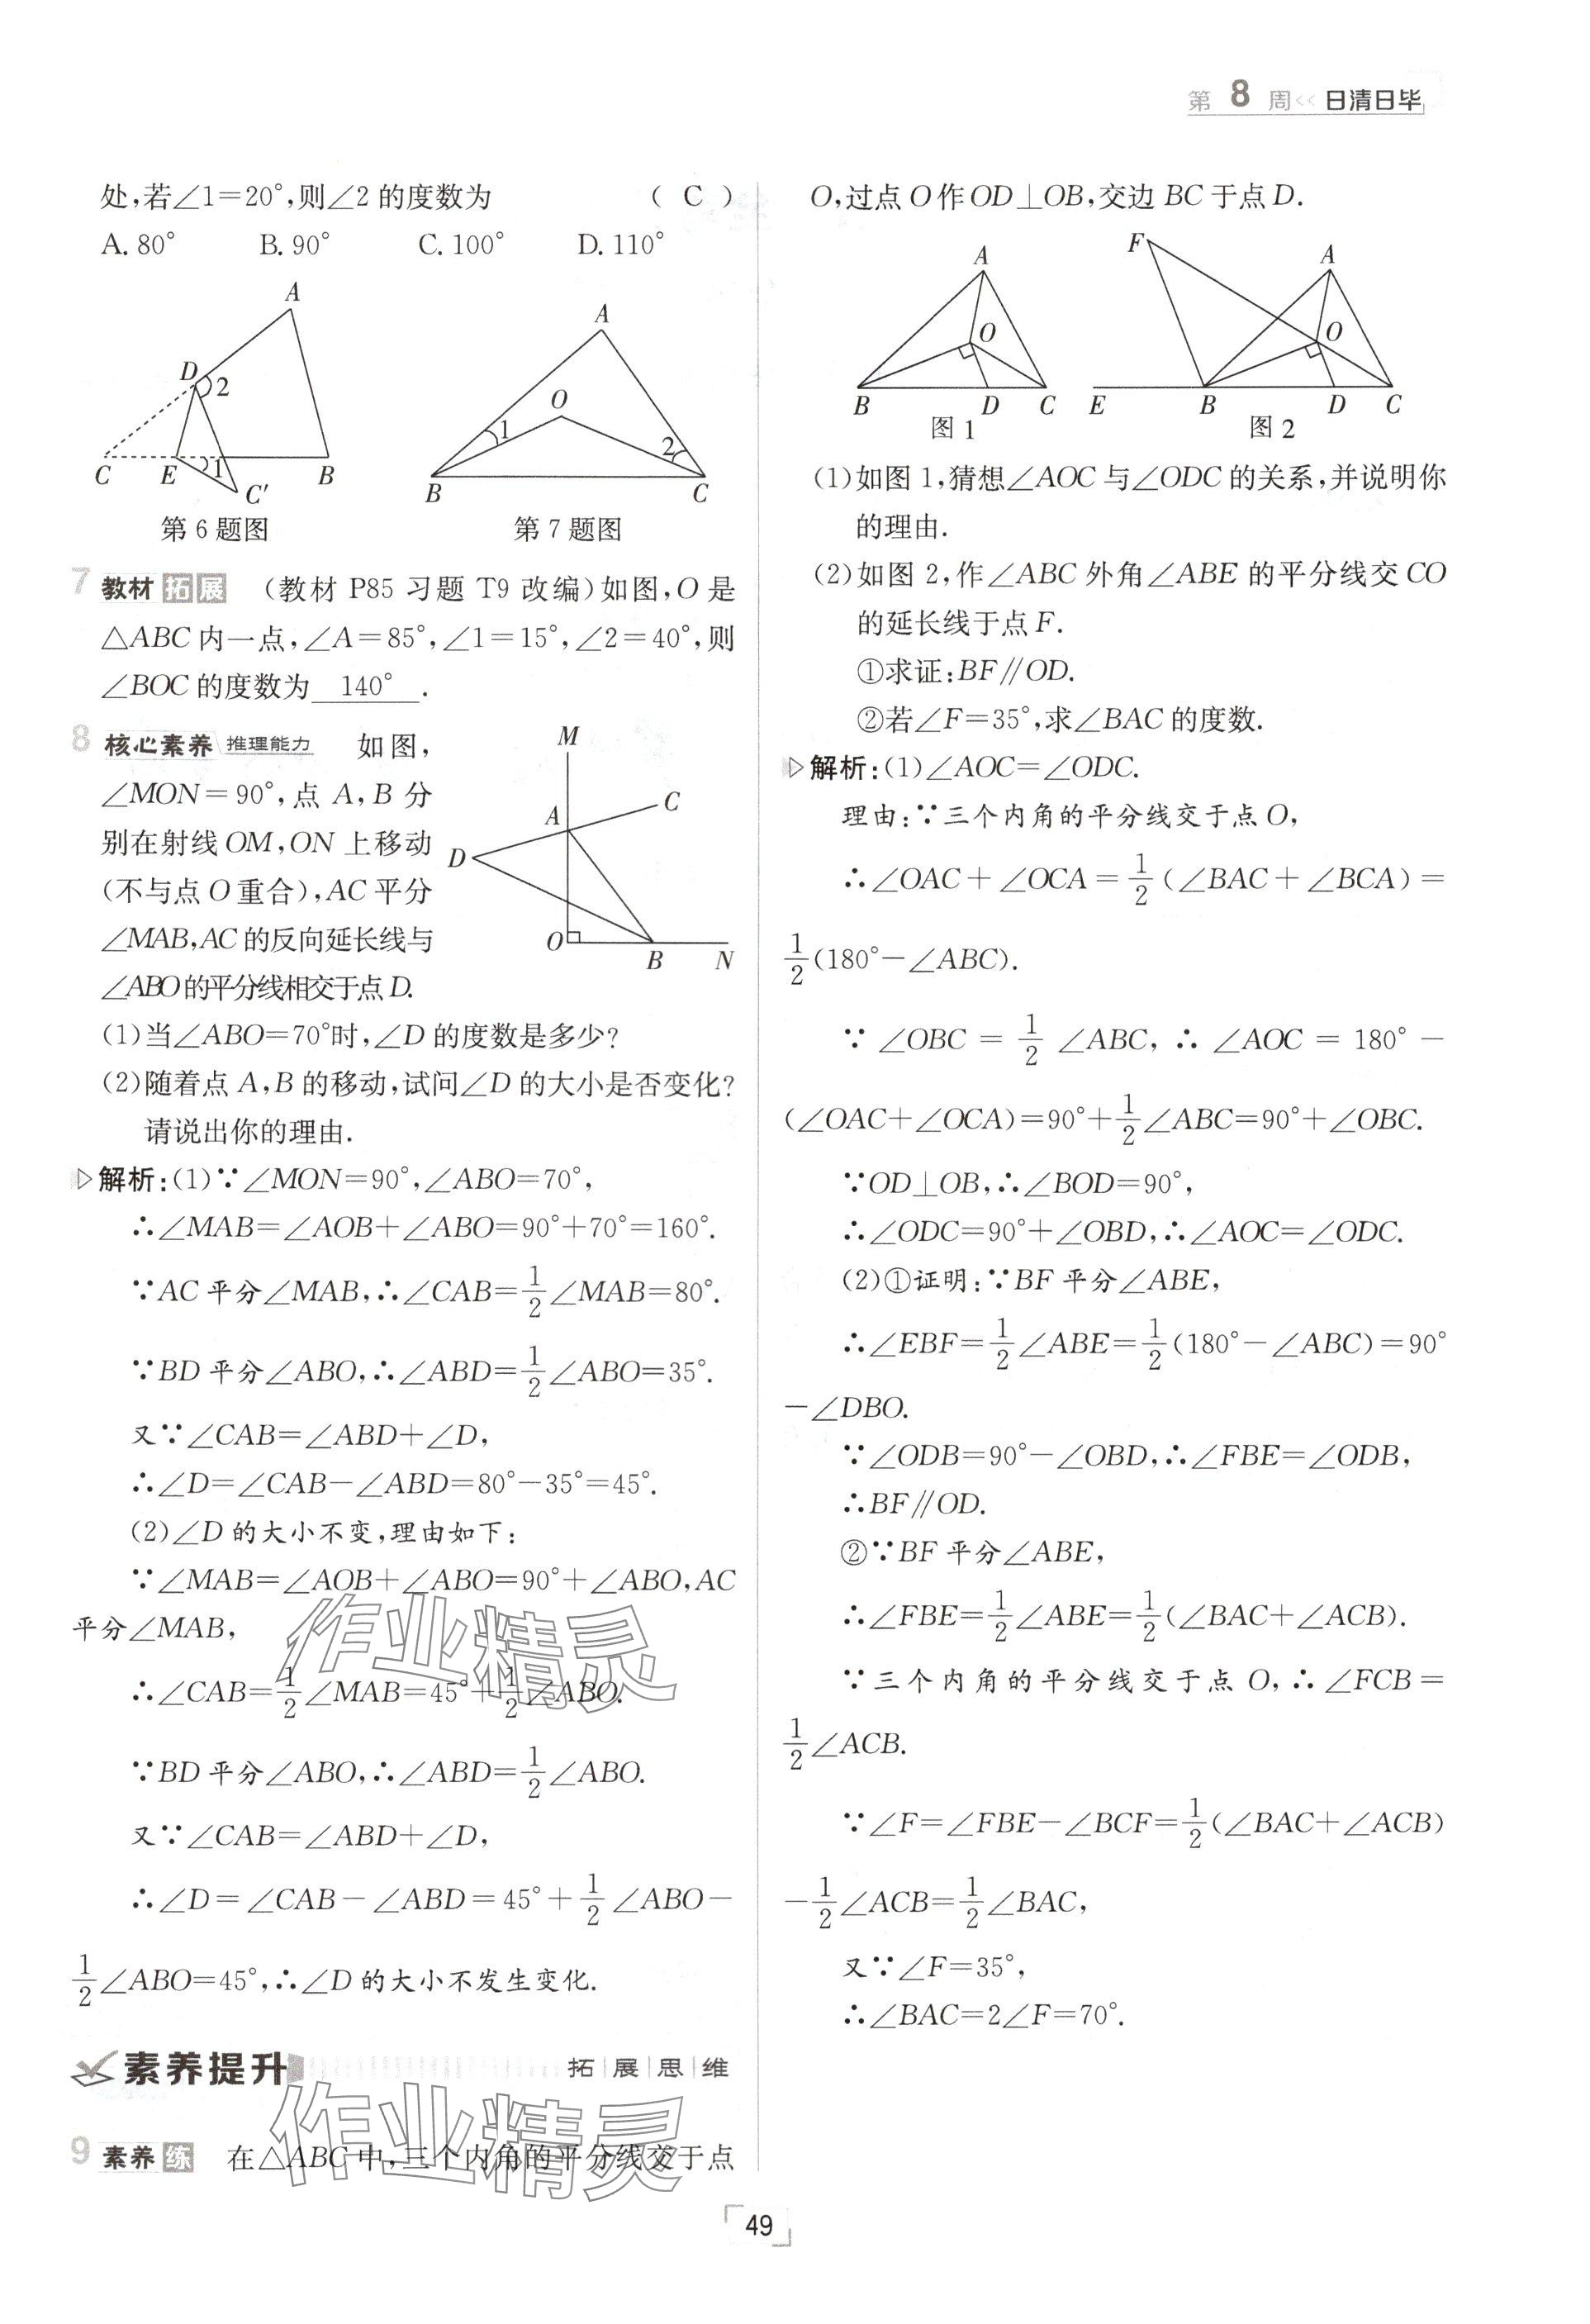 第 8 周<< 日清日毕
处,若∠1=20°,则∠2的度数为 ( C )
A. 80° B. 90° C. 100° D. 110°
A
D
2
C
E
1
B
C′
第6题图
A
O
1
2
B
C
第7题图
7 教材拓展 (教材 P85 习题 T9 改编)如图,O 是
△ABC 内一点,∠A=85°,∠1=15°,∠2=40°,则
∠BOC 的度数为 140° .
8 核心素养 推理能力 如图,
∠MON=90°,点 A,B 分
别在射线OM,ON 上移动
(不与点 O 重合),AC 平分
∠MAB,AC的反向延长线与
∠ABO的平分线相交于点D.
M
A
C
D
O
B
N
(1)当∠ABO=70°时,∠D 的度数是多少?
(2)随着点 A,B 的移动,试问∠D 的大小是否变化?
请说出你的理由.
解析:(1)∵∠MON=90°,∠ABO=70°,
∴∠MAB=∠AOB+∠ABO=90°+70°=160°.
∵AC 平分∠MAB,∴∠CAB=1/2∠MAB=80°.
∵BD 平分∠ABO,∴∠ABD=1/2∠ABO=35°.
又∵∠CAB=∠ABD+∠D,
∴∠D=∠CAB-∠ABD=80°-35°=45°.
(2)∠D 的大小不变,理由如下:
∵∠MAB=∠AOB+∠ABO=90°+∠ABO,AC
平分∠MAB,
∴∠CAB=1/2∠MAB=45°+1/2∠ABO.
∵BD 平分∠ABO,∴∠ABD=1/2∠ABO.
又∵∠CAB=∠ABD+∠D,
∴∠D=∠CAB-∠ABD=45°+1/2∠ABO-
1/2∠ABO=45°,∴∠D 的大小不发生变化.
素养提升 拓展思维
9 素养练 在△ABC中,三个内角的平分线交于点
O,过点O作OD⊥OB,交边BC于点D.
A
O
B
D
C
图1
F
A
O
E
B
D
C
图2
(1)如图1,猜想∠AOC与∠ODC的关系,并说明你
的理由.
(2)如图2,作∠ABC外角∠ABE的平分线交CO
的延长线于点F.
①求证:BF∥OD.
②若∠F=35°,求∠BAC的度数.
解析:(1)∠AOC=∠ODC.
理由:∵三个内角的平分线交于点O,
∴∠OAC+∠OCA=1/2(∠BAC+∠BCA)=
1/2(180°-∠ABC).
∵∠OBC=1/2∠ABC,∴∠AOC=180°-
(∠OAC+∠OCA)=90°+1/2∠ABC=90°+∠OBC.
∵OD⊥OB,∴∠BOD=90°,
∴∠ODC=90°+∠OBD,∴∠AOC=∠ODC.
(2)①证明:∵BF平分∠ABE,
∴∠EBF=1/2∠ABE=1/2(180°-∠ABC)=90°
-∠DBO.
∵∠ODB=90°-∠OBD,∴∠FBE=∠ODB,
∴BF∥OD.
②∵BF平分∠ABE,
∴∠FBE=1/2∠ABE=1/2(∠BAC+∠ACB).
∵三个内角的平分线交于点O,∴∠FCB=
1/2∠ACB.
∵∠F=∠FBE-∠BCF=1/2(∠BAC+∠ACB)
-1/2∠ACB=1/2∠BAC,
又∵∠F=35°,
∴∠BAC=2∠F=70°.
作业精灵
作业精灵
49